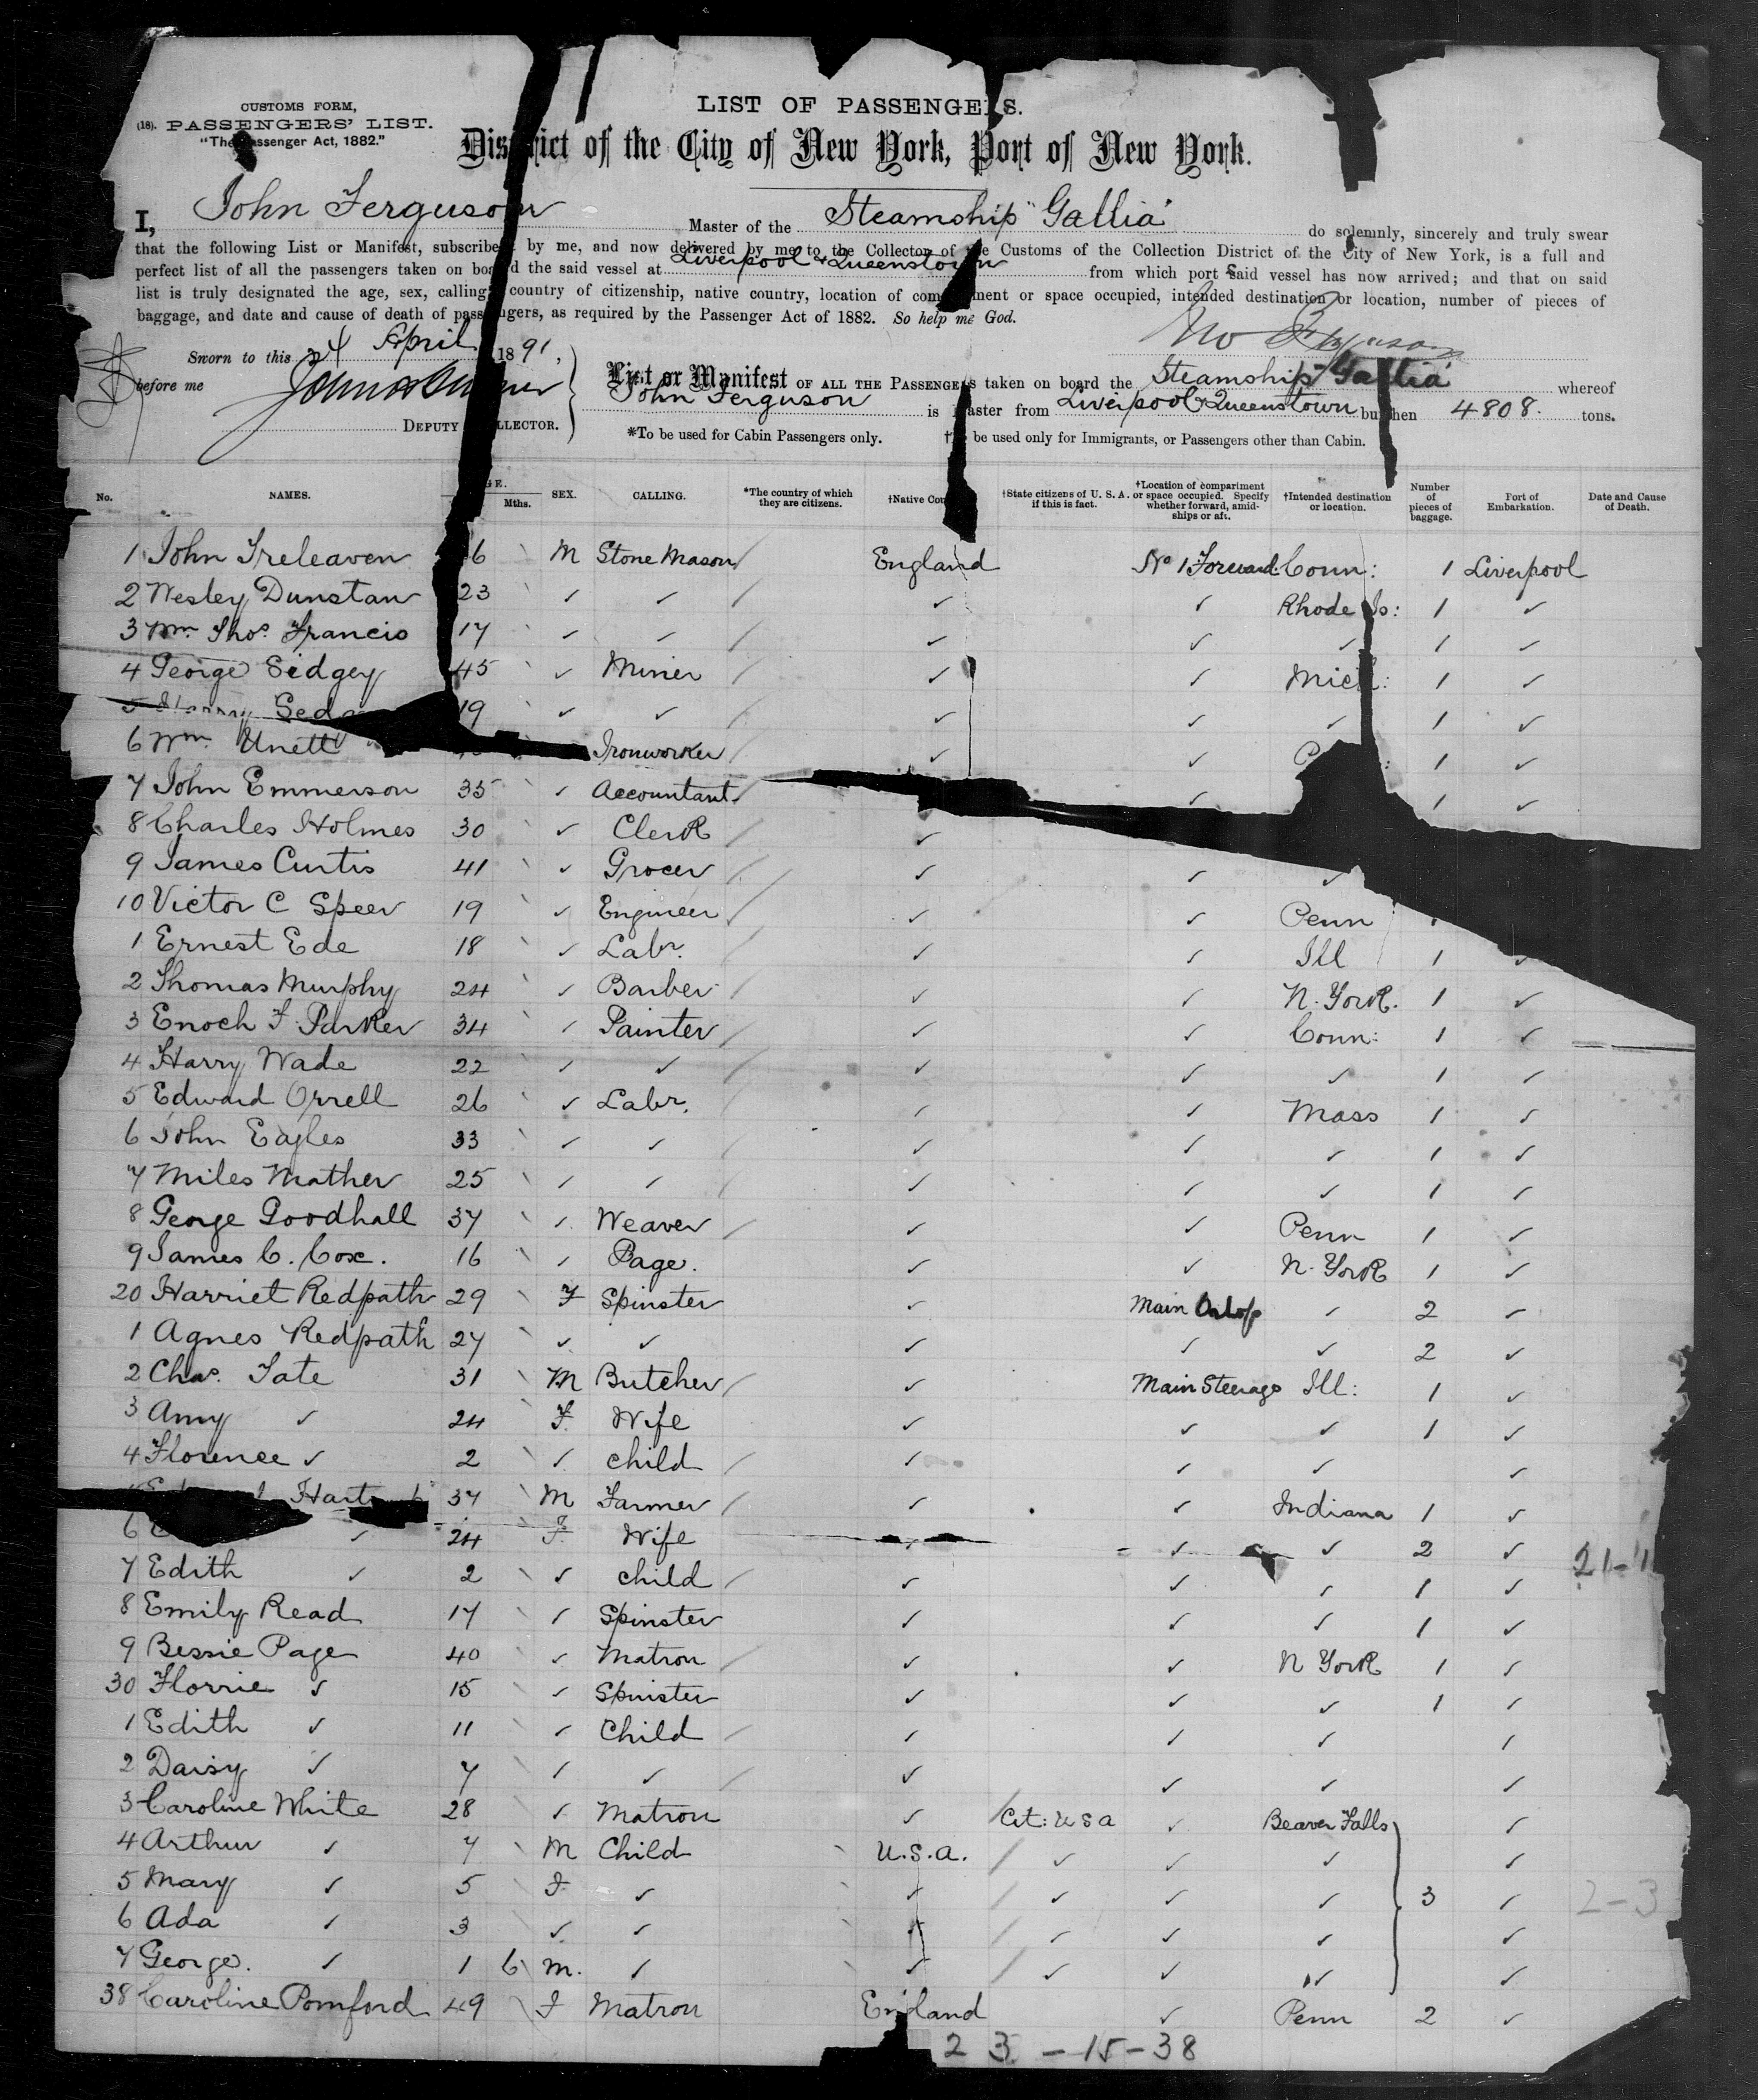 CUSTOMS FORM,
(18). PASSENGERS' LIST.
"The Passenger Act, 1882."
LIST OF PASSENGERS.
District of the City of New York, Port of New York.
I, John Ferguson Master of the Steamship "Gallia" do solemnly, sincerely and truly swear
that the following List or Manifest, subscribed by me, and now delivered by me to the Collector of the Customs of the Collection District of the City of New York, is a full and
perfect list of all the passengers taken on board the said vessel at Liverpool & Queenstown from which port said vessel has now arrived; and that on said
list is truly designated the age, sex, calling, country of citizenship, native country, location of compartment or space occupied, intended destination or location, number of pieces of
baggage, and date and cause of death of passengers, as required by the Passenger Act of 1882. So help me God.
Jno Ferguson
Sworn to this 24 April 1891,
before me
DEPUTY COLLECTOR.
List or Manifest OF ALL THE PASSENGERS taken on board the Steamship "Gallia" whereof
John Ferguson is Master from Liverpool & Queenstown burthen 4808. tons.
*To be used for Cabin Passengers only. †To be used only for Immigrants, or Passengers other than Cabin.
No. NAMES. AGE. Mths. SEX. CALLING. *The country of which they are citizens. †Native Country †State citizens of U. S. A. if this is fact. †Location of compartment or space occupied. Specify whether forward, amidships or aft. †Intended destination or location. Number of pieces of baggage. Port of Embarkation. Date and Cause of Death.
1 John Treleaven 6 M Stone Mason / England No 1 Forward. Conn: 1 Liverpool
2 Wesley Dunstan 23 ✓ ✓ / ✓ ✓ Rhode Is: 1 ✓
3 Wm. Thos. Francis 17 ✓ ✓ / ✓ ✓ ✓ 1 ✓
4 George Sidgey 45 ✓ Miner / ✓ ✓ Mich: 1 ✓
5 Harry 19 ✓ ✓ / ✓ ✓ ✓ 1 ✓
6 Wm. Unett Ironworker / ✓ ✓ 1 ✓
7 John Emmerson 35 ✓ Accountant / ✓ 1 ✓
8 Charles Holmes 30 ✓ Clerk / ✓
9 James Curtis 41 ✓ Grocer / ✓ ✓ ✓
10 Victor C Speer 19 ✓ Engineer / ✓ ✓ Penn
1 Ernest Ede 18 ✓ Labr. / ✓ ✓ Ill 1 ✓
2 Thomas Murphy 24 ✓ Barber / ✓ ✓ N. York. 1 ✓
3 Enoch F. Parker 34 ✓ Painter / ✓ ✓ Conn: 1 ✓
4 Harry Wade 22 ✓ ✓ / ✓ ✓ ✓ 1 ✓
5 Edward Orrell 26 ✓ Labr. / ✓ ✓ Mass 1 ✓
6 John Eagles 33 ✓ ✓ / ✓ ✓ ✓ 1 ✓
7 Miles Mather 25 ✓ ✓ / ✓ ✓ ✓ 1 ✓
8 George Goodhall 37 ✓ Weaver / ✓ ✓ Penn 1 ✓
9 James C. Cox. 16 ✓ Page. ✓ ✓ N. York 1 ✓
20 Harriet Redpath 29 F Spinster ✓ Main Orlop ✓ 2 ✓
1 Agnes Redpath 27 ✓ ✓ ✓ ✓ ✓ 2 ✓
2 Chas. Tate 31 M Butcher / ✓ Main Steerage Ill: 1 ✓
3 Amy ✓ 24 F. Wife ✓ ✓ ✓ 1 ✓
4 Florence ✓ 2 ✓ child / ✓ ✓ ✓ ✓
37 M Farmer / ✓ ✓ Indiana 1 ✓
6 E ✓ 24 F. Wife ✓ ✓ 2 ✓
7 Edith ✓ 2 ✓ child / ✓ ✓ ✓ 1 ✓ 21-1
8 Emily Read 17 ✓ Spinster ✓ ✓ ✓ 1 ✓
9 Bessie Page 40 ✓ Matron / ✓ ✓ N York 1 ✓
30 Florrie ✓ 15 ✓ Spinster ✓ ✓ ✓ 1 ✓
1 Edith ✓ 11 ✓ Child / ✓ ✓ ✓ ✓
2 Daisy ✓ 7 ✓ ✓ / ✓ ✓ ✓ ✓
3 Caroline White 28 ✓ Matron ✓ / Cit: U S A ✓ Beaver Falls ✓
4 Arthur ✓ 7 M Child U.S.A. / ✓ ✓ ✓ ✓
5 Mary ✓ 5 F. ✓ ✓ / ✓ ✓ ✓ 3 ✓ 2-3
6 Ada ✓ 3 ✓ ✓ ✓ / ✓ ✓ ✓ ✓
7 George. ✓ 1 6 M. ✓ ✓ / ✓ ✓ ✓ ✓
38 Caroline Pomford 49 F Matron England ✓ Penn 2 ✓
23 - 15 - 38